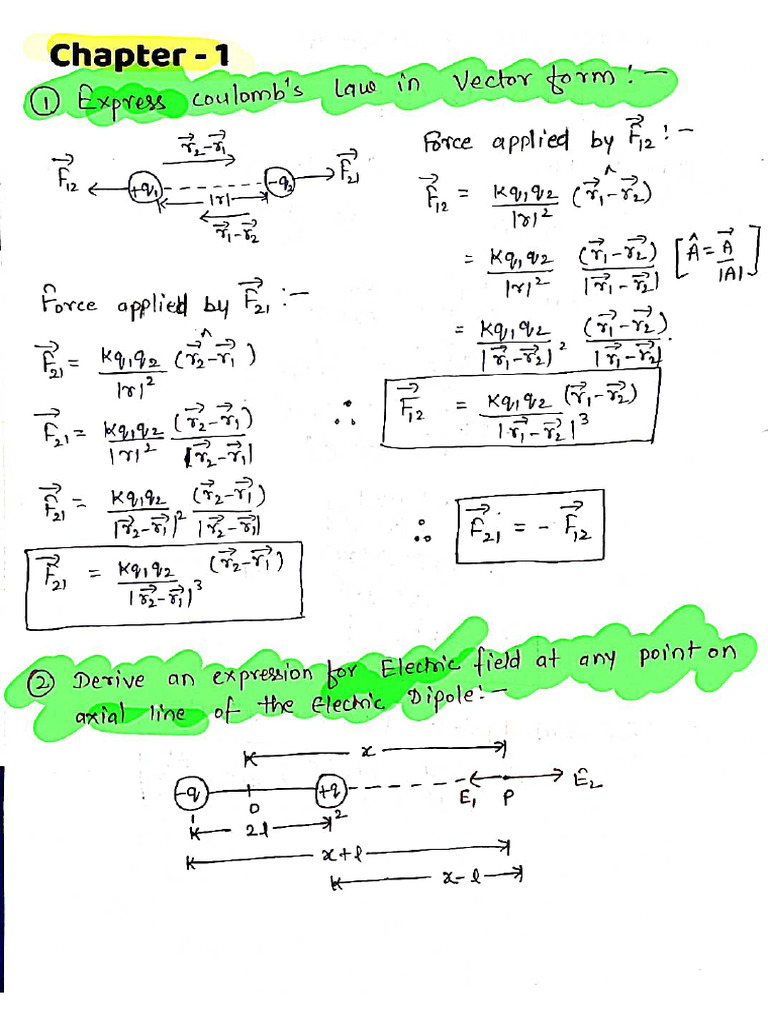 Chapter - 1
① Express Coulomb's Law in Vector form :-
$\vec{r}_2-\vec{r}_1$
$\vec{F}_{12}$ +q₁ |r| -q₂ $\vec{F}_{21}$
$\vec{r}_1-\vec{r}_2$
Force applied by $\vec{F}_{12}$ :-
$\vec{F}_{12} = \frac{Kq_1q_2}{|r|^2} (\hat{\vec{r}_1-\vec{r}_2})$
$= \frac{Kq_1q_2}{|r|^2} \frac{(\vec{r}_1-\vec{r}_2)}{|\vec{r}_1-\vec{r}_2|} \left[\hat{A} = \frac{\vec{A}}{|A|}\right]$
$= \frac{Kq_1q_2}{|\vec{r}_1-\vec{r}_2|^2} \frac{(\vec{r}_1-\vec{r}_2)}{|\vec{r}_1-\vec{r}_2|}$
∴ $\vec{F}_{12} = \frac{Kq_1q_2 (\vec{r}_1-\vec{r}_2)}{|\vec{r}_1-\vec{r}_2|^3}$
Force applied by $\vec{F}_{21}$ :-
$\vec{F}_{21} = \frac{Kq_1q_2}{|r|^2} (\hat{\vec{r}_2-\vec{r}_1})$
$\vec{F}_{21} = \frac{Kq_1q_2}{|r|^2} \frac{(\vec{r}_2-\vec{r}_1)}{|\vec{r}_2-\vec{r}_1|}$
$\vec{F}_{21} = \frac{Kq_1q_2}{|\vec{r}_2-\vec{r}_1|^2} \frac{(\vec{r}_2-\vec{r}_1)}{|\vec{r}_2-\vec{r}_1|}$
$\vec{F}_{21} = \frac{Kq_1q_2}{|\vec{r}_2-\vec{r}_1|^3} (\vec{r}_2-\vec{r}_1)$
∴ $\vec{F}_{21} = - \vec{F}_{12}$
② Derive an expression for Electric field at any point on
axial line of the Electric Dipole :-
x
-q O +q E₁ P E₂
2l 2
x+l
x-l